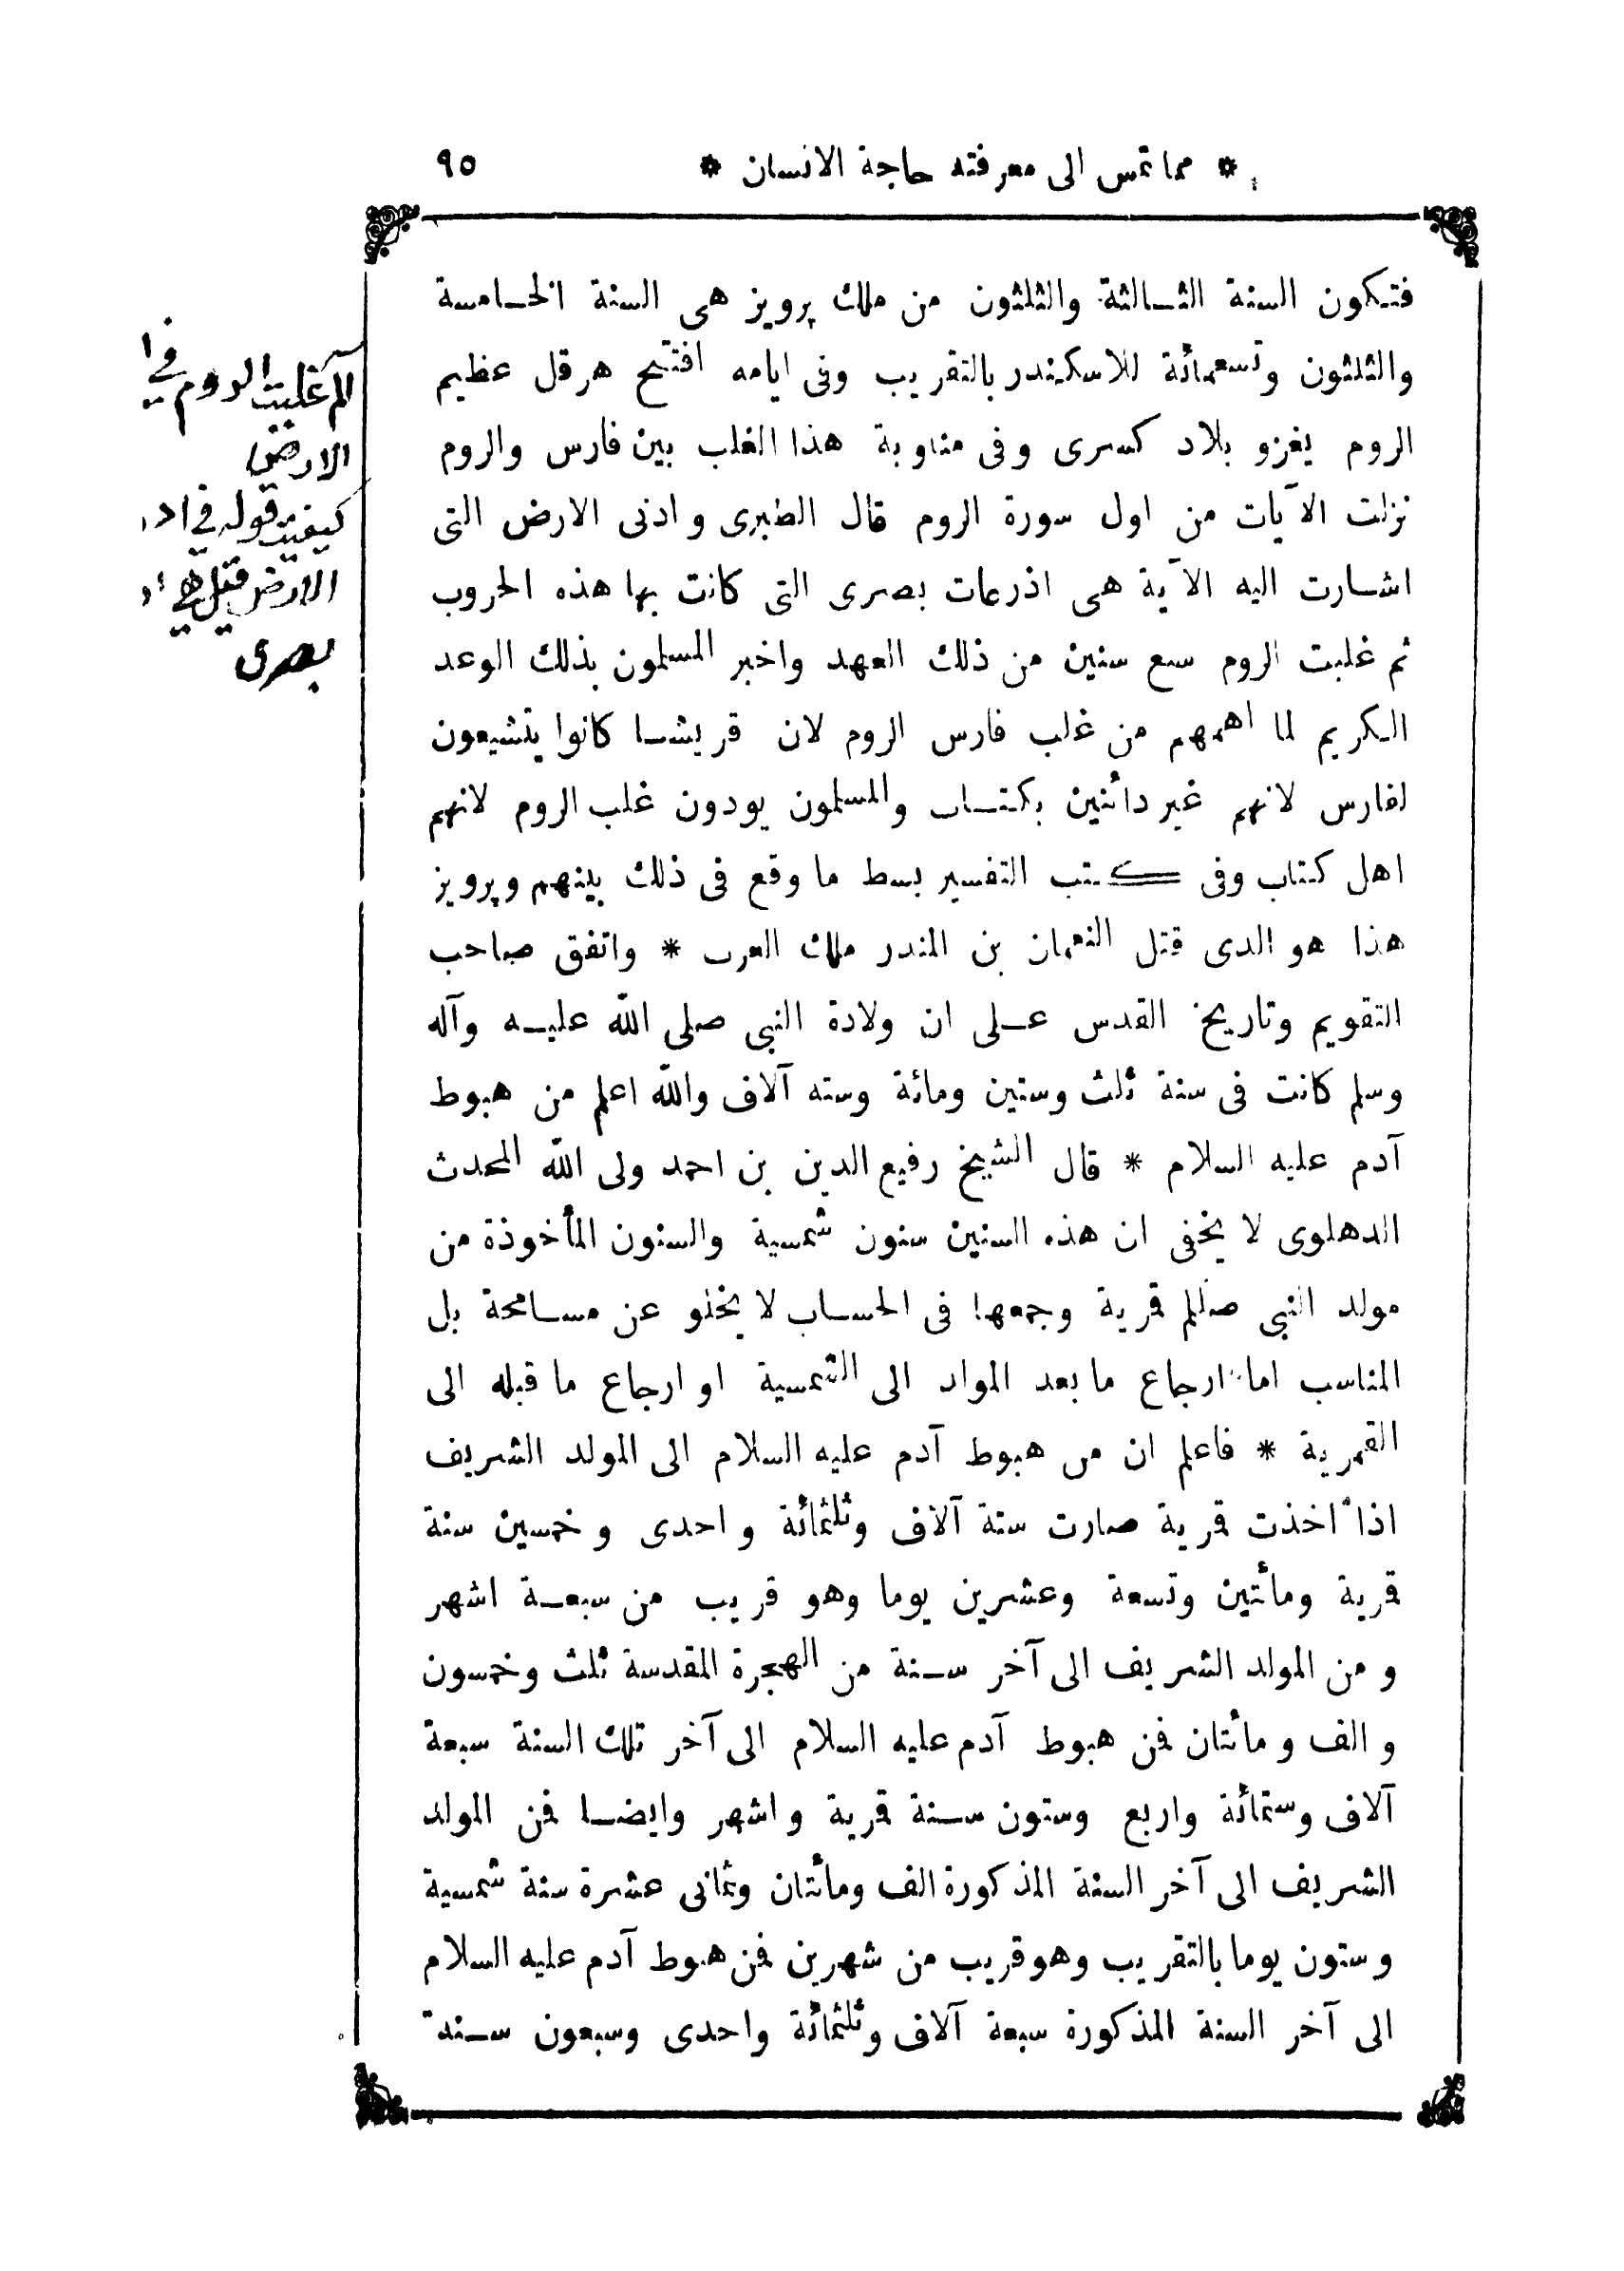 * مما تمس الى معرفته حاجة الانسان * ٩٥
فتكون السنة الثالثة والثلثون من ملك پرويز هى السنة الخامسة
والثلثون وتسعمائة للاسكندر بالتقريب وفى ايامه افتتح هرقل عظيم
الروم يغزو بلاد كسرى وفى مناوبة هذا الغلب بين فارس والروم
نزلت الآيات من اول سورة الروم قال الطبرى وادنى الارض التى
اشارت اليه الآية هى اذرعات بصرى التى كانت بها هذه الحروب
ثم غلبت الروم سبع سنين من ذلك العهد واخبر المسلمون بذلك الوعد
الكريم لما اهمهم من غلب فارس الروم لان قريشا كانوا يتشيعون
لفارس لانهم غير دائنين بكتاب والمسلمون يودون غلب الروم لانهم
اهل كتاب وفى كتب التفسير بسط ما وقع فى ذلك بينهم وپرويز
هذا هو الذى قتل النعمان بن المنذر ملك العرب * واتفق صاحب
التقويم وتاريخ القدس على ان ولادة النبى صلى الله عليه وآله
وسلم كانت فى سنة ثلث وستين ومائة وسته آلاف والله اعلم من هبوط
آدم عليه السلام * قال الشيخ رفيع الدين بن احمد ولى الله المحدث
الدهلوى لا يخفى ان هذه السنين سنون شمسية والسنون المأخوذة من
مولد النبى صللم قمرية وجمعها فى الحساب لا يخلو عن مسامحة بل
المناسب اما ارجاع ما بعد المواد الى الشمسية او ارجاع ما قبله الى
القمرية * فاعلم ان من هبوط آدم عليه السلام الى المولد الشريف
اذا اخذت قمرية صارت ستة آلاف وثلثمائة واحدى وخمسين سنة
قمرية ومأتين وتسعة وعشرين يوما وهو قريب من سبعة اشهر
ومن المولد الشريف الى آخر سنة من الهجرة المقدسة ثلث وخمسون
والف ومائتان فمن هبوط آدم عليه السلام الى آخر تلك السنة سبعة
آلاف وستمائة واربع وستون سنة قمرية واشهر وايضا فمن المولد
الشريف الى آخر السنة المذكورة الف ومائتان وثمانى عشرة سنة شمسية
وستون يوما بالتقريب وهو قريب من شهرين فمن هبوط آدم عليه السلام
الى آخر السنة المذكورة سبعة آلاف وثلثمائة واحدى وسبعون سنة
الم غلبت الروم في
الارض
كيفيت قوله في
الارض قيل هي
بصرى